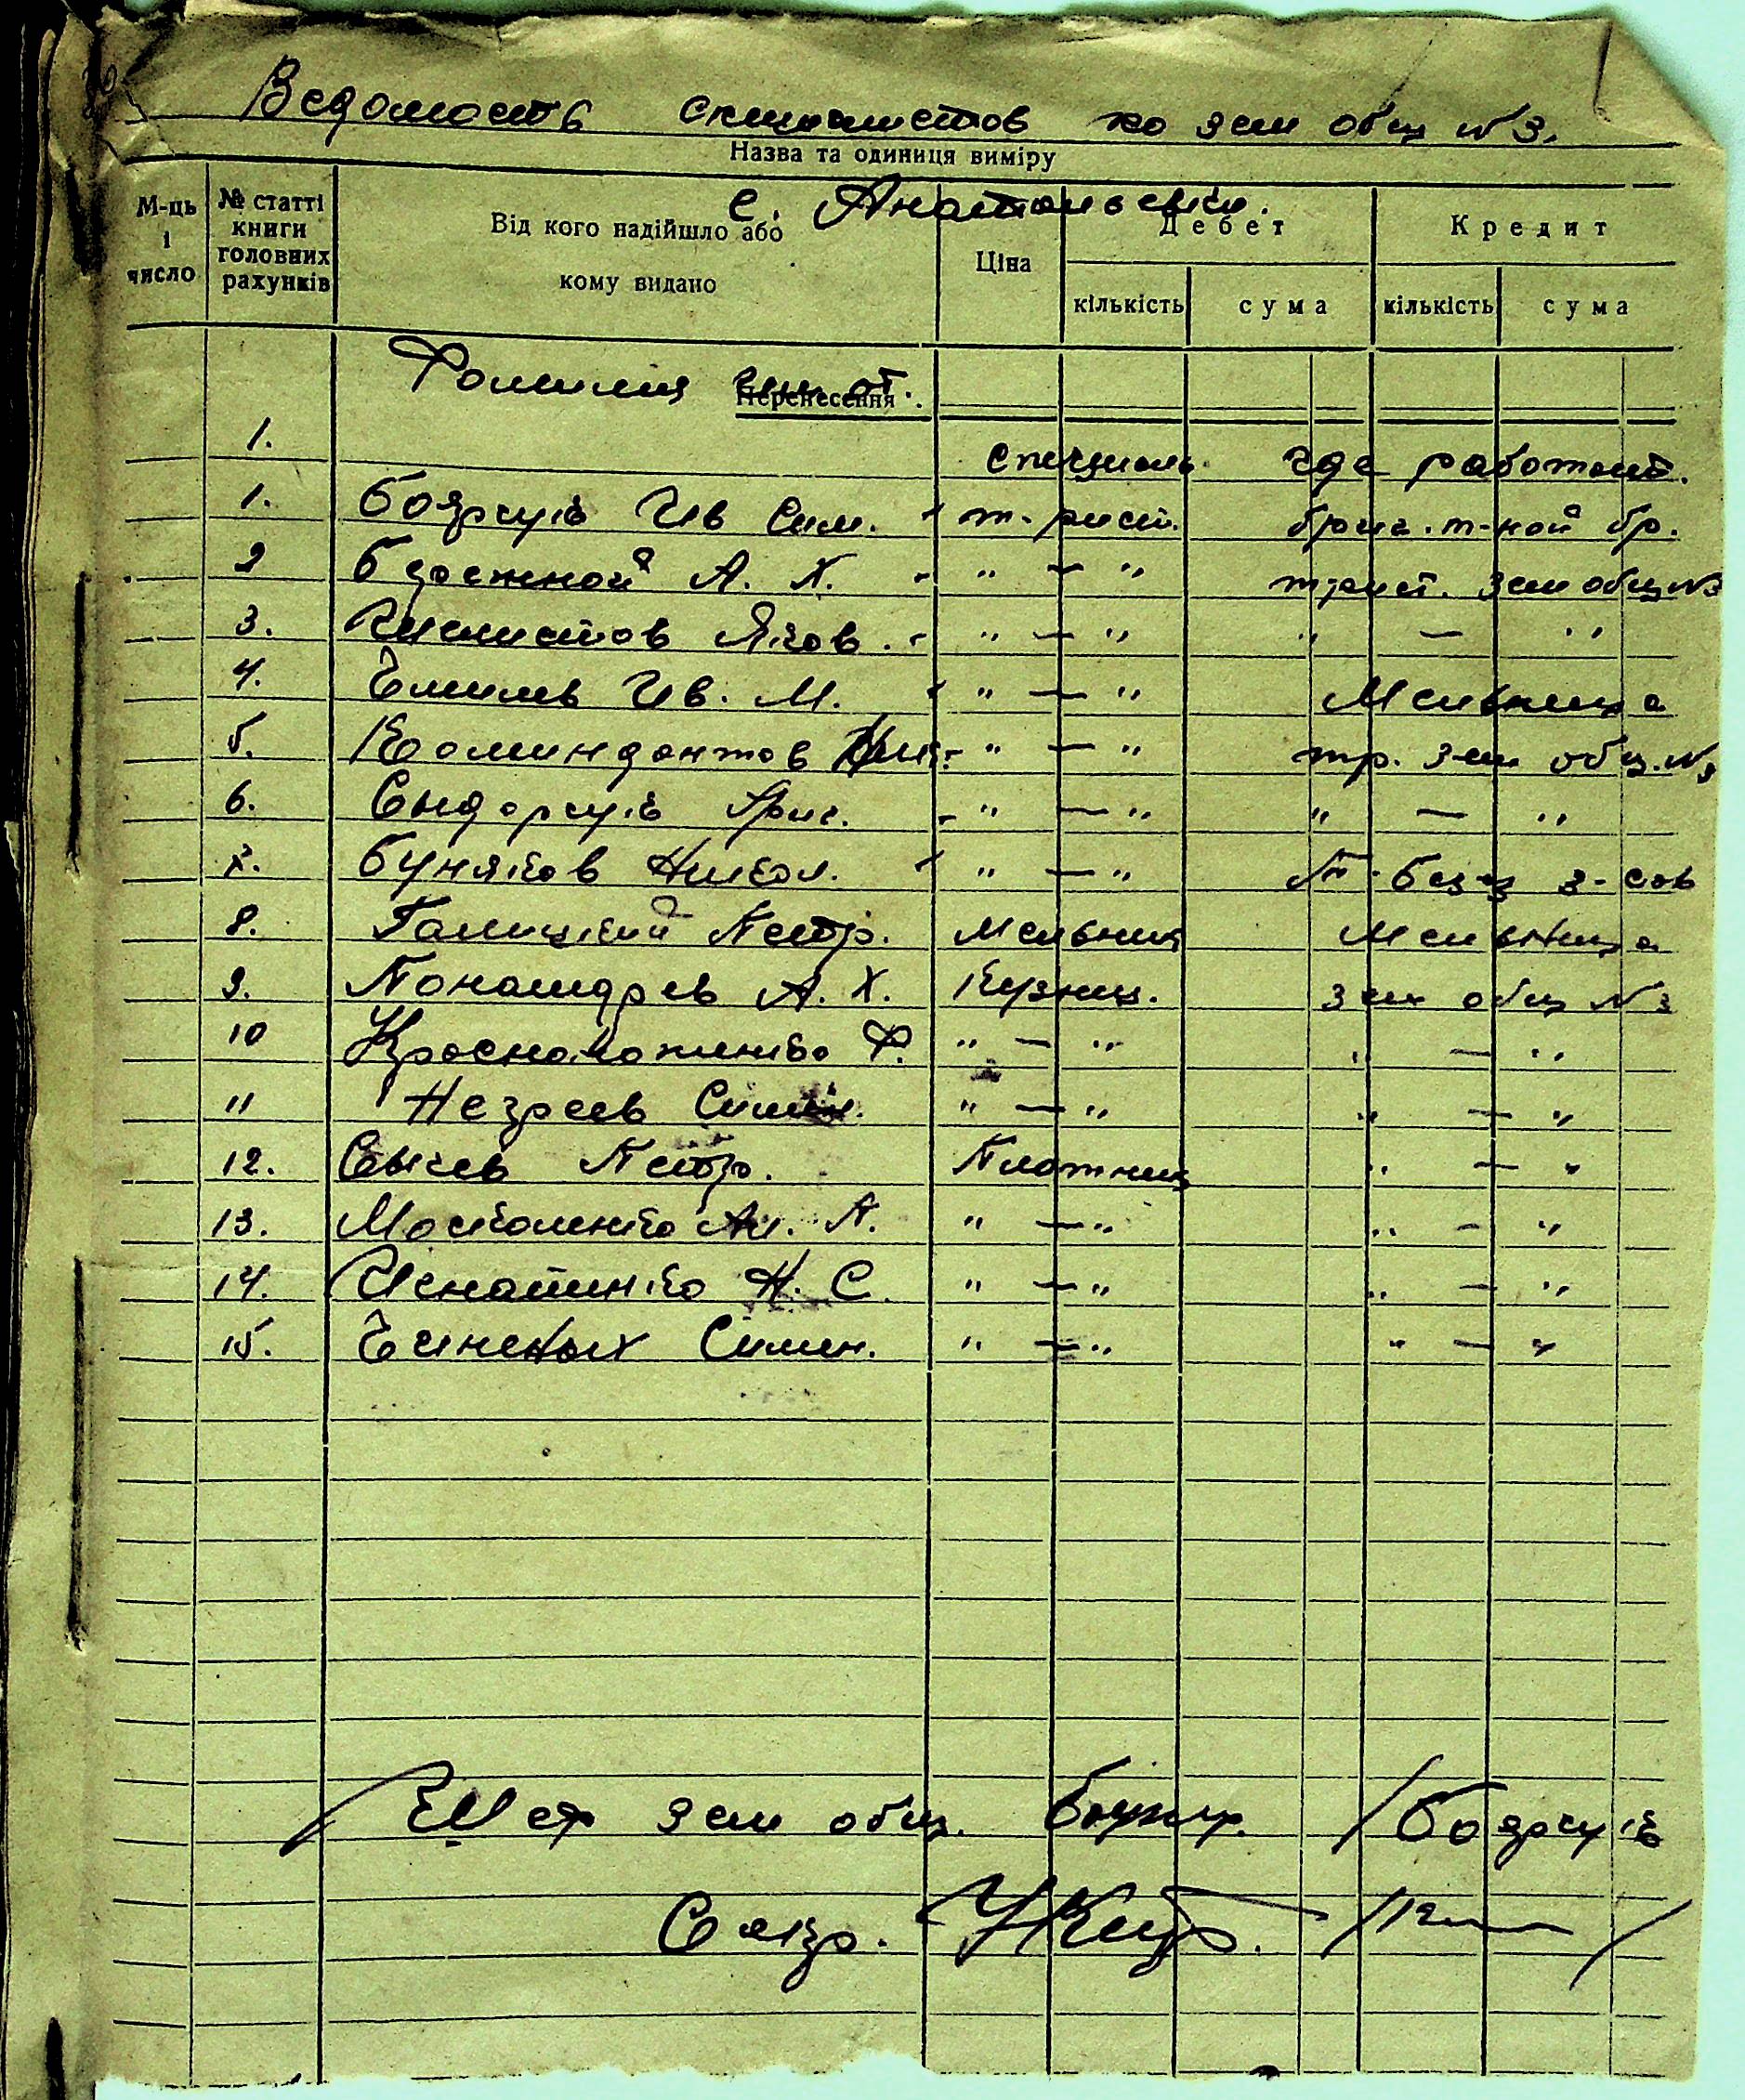 Ведомость специалистов по зем общ №3.
Назва та одиниця виміру
с. Анатольевки.
М-ць і число
№ статті книги головних рахунків
Від кого надійшло або кому видано
Ціна
Дебет
Кредит
кількість сума кількість сума
Фомилия
Перенесення
1. специаль где работает.
1. Боярчук Ив Сем. т-рист. бриг. т-ной бр.
2 Бережной А. Х. " — " трист. зем общ №3
3. Числистов Яков. " — " " — "
4. Емильев Ив. М. " — " Мельница
5. Комендантов " — " тр. зем общ. №3
6. Сндорчук Григ. " — " " — "
7. Буняков Никол. " — "
8. Галицкий Петр. Мельник Мельница
9. Понамарев А. Х. Кузнец. Зем общ №3
10 Красноложенко Ф. " — " " — "
11 Незреев Симен. " — " " — "
12. Сычев Петр. Плотник " — "
13. Москаленко Ал. А. " — " " — "
14. Игнатенко Н. С. " — " " — "
15. Симен. " — " " — "
зем общ. /Боярчук
Секр.